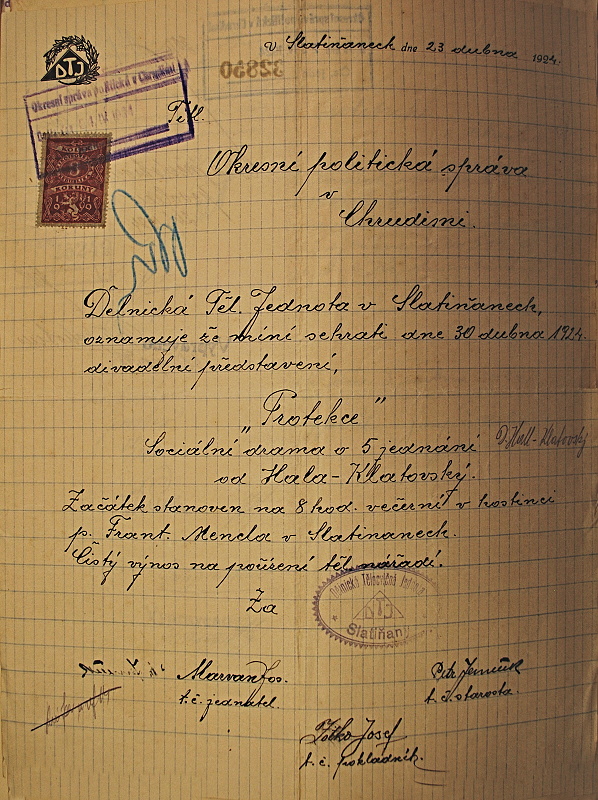 v Slatiňanech dne 23 dubna 1924.
DTJ
32850
Okresní správa politická v Chrudimi
Titl.
KOLEK
KORUNY
Okresní politická správa
v
Chrudimi.
Dělnická Těl. Jednota v Slatiňanech,
oznamuje že míní sehrati dne 30 dubna 1924.
divadelní představení,
„Protekce"
Sociální drama o 5 jednání
od Hala-Klatovský.
Začátek stanoven na 8 hod. večerní v hostinci
p. Frant. Mencla v Slatinanech.
Čistý výnos na pořízení těl. nářadí.
Za
Dělnická Tělocvičná Jednota
DTJ
Slatiňany
Marvan Jos.
t. č. jednatel.
Petr
t. č. starosta.
Josef
t. č. pokladník.